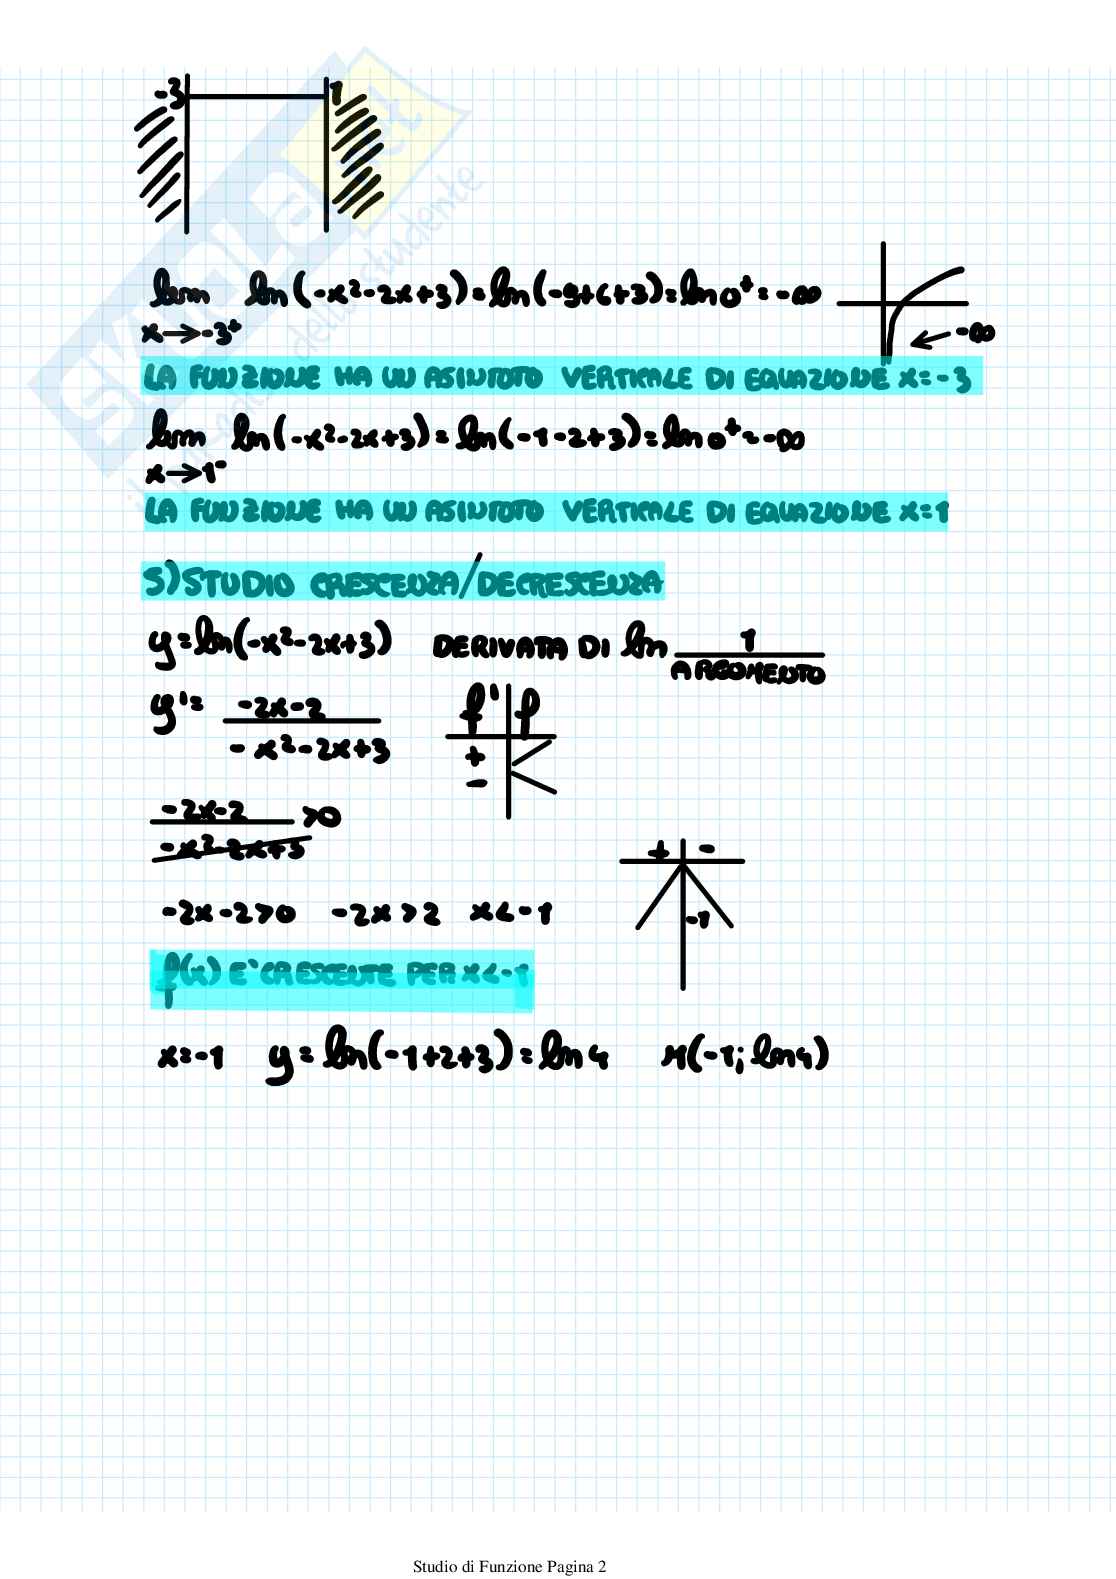 -3 1
lim ln(-x²-2x+3)=ln(-9+6+3)=ln0⁺=-∞
x→-3⁺
-∞
LA FUNZIONE HA UN ASINTOTO VERTICALE DI EQUAZIONE x=-3
lim ln(-x²-2x+3)=ln(-1-2+3)=ln0⁺=-∞
x→1⁻
LA FUNZIONE HA UN ASINTOTO VERTICALE DI EQUAZIONE x=1
5)STUDIO CRESCENZA/DECRESCENZA
y=ln(-x²-2x+3) DERIVATA DI ln 1/ARGOMENTO
y'= -2x-2
-x²-2x+3
f' f
+
-
-2x-2 >0
-x²-2x+3
+ -
-1
-2x-2>0 -2x>2 x<-1
f(x) E' CRESCENTE PER x<-1
x=-1 y=ln(-1+2+3)=ln4 M(-1;ln4)
SKUOLA.net
Studio di Funzione Pagina 2